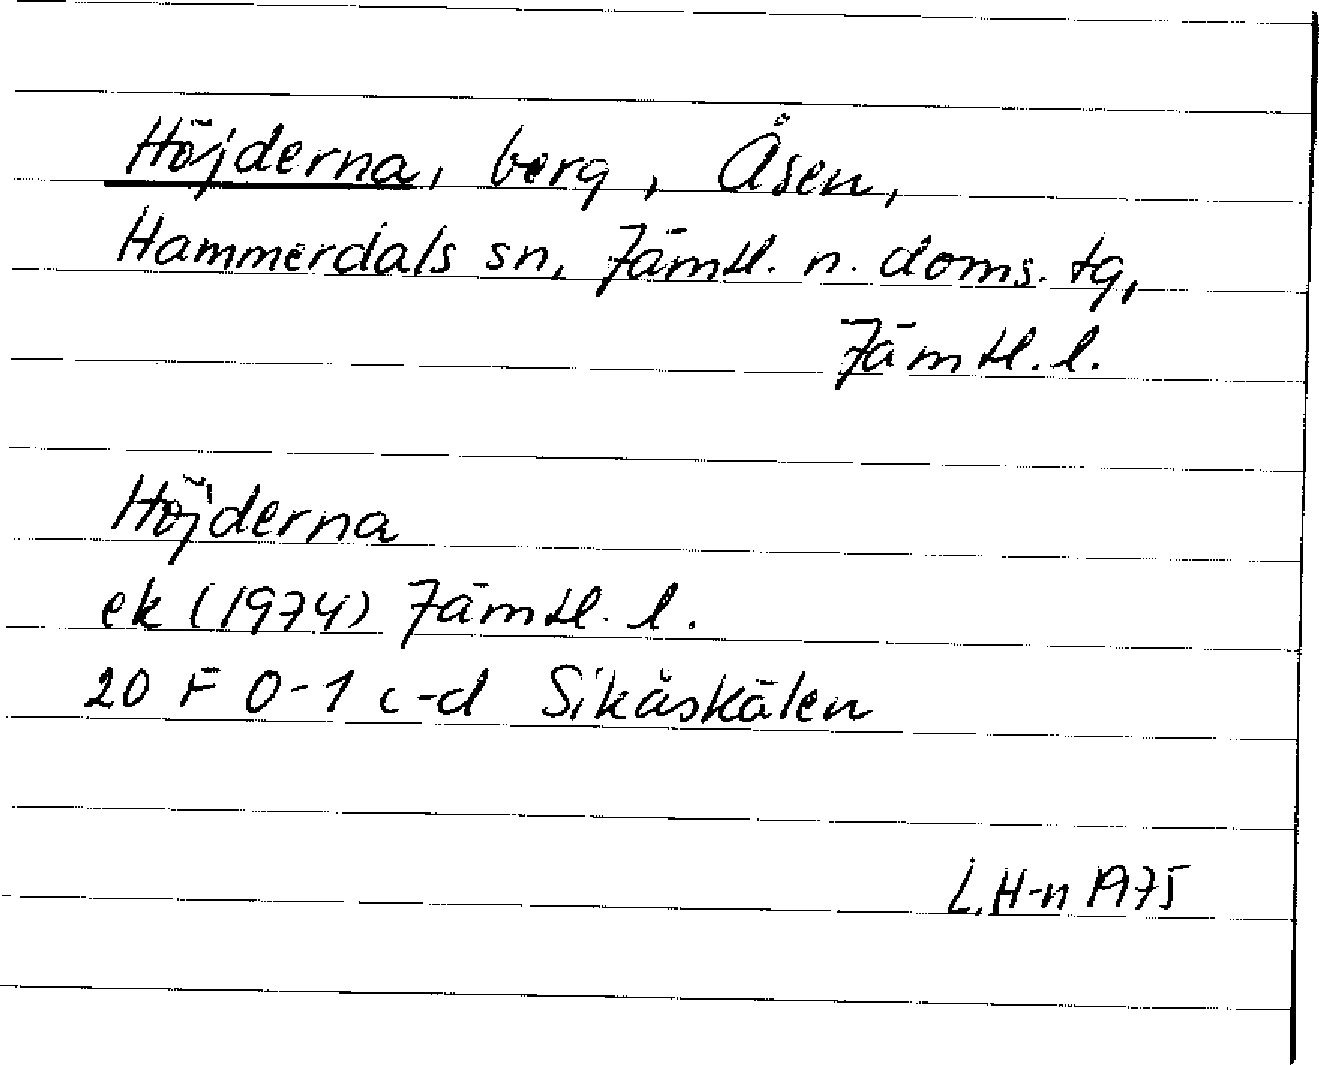 Höjderna, berg, Åsen,
Hammerdals sn, Jämtl. n. doms. tg,
Jämtl. l.
Höjderna
ek (1974) Jämtl. l.
20 F 0-1 c-d Sikåskälen
L.H-n 1975